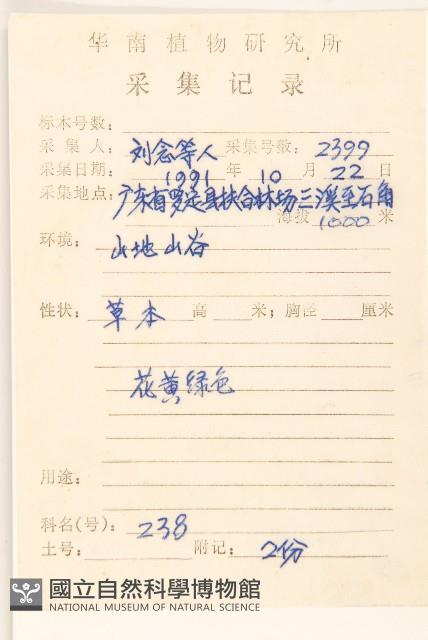 华南植物研究所
采集记录
标本号数：
采集人：刘念等人 采集号数：2399
采集日期：1991年10月22日
采集地点：广东省罗定县扶合林场三溪至石角
海拔1000米
环境：山地山谷
性状：草本 高 米；胸径 厘米
花黄绿色
用途：
科名(号)：238
土号： 附记：2份
國立自然科學博物館
NATIONAL MUSEUM OF NATURAL SCIENCE